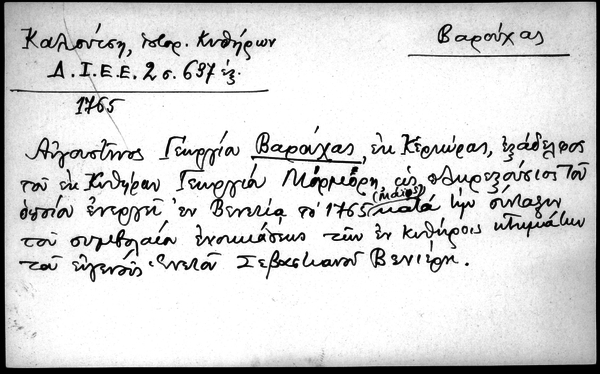 Καλούτση, ἱστορ. Κυθήρων
Βαρούχας
Δ.Ι.Ε.Ε. 2 σ. 637 ἑξ.
1765
Αὐγουστῖνος Γεωργίου Βαρούχας, ἐκ Κερκύρας, ἐξάδελφος
τοῦ ἐκ Κυθήρων Γεωργίου Μόρμορη ὡς πληρεξούσιος τοῦ
ὁποίου ἐνεργεῖ ἐν Βενετίᾳ τό 1765 (μάϊος) κατά τήν σύνταξιν
τοῦ συμβολαίου ἐνοικιάσεως τῶν ἐν Κυθήροις κτημάτων
τοῦ εὐγενοῦς Ἑνετοῦ Σεβαστιανοῦ Βενιέρη.